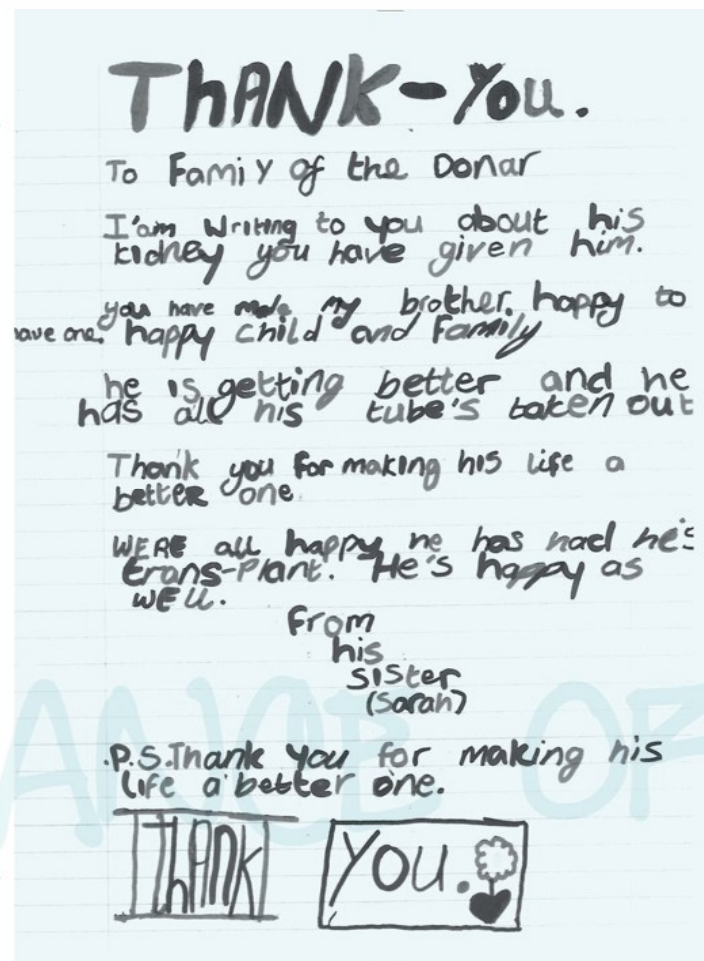 THANK-YOU.
To Famiy of the Donar
I'am writing to you about his
kidney you have given him.
you have made my brother. happy to
have one. happy child and Family
he is getting better and he
has all his tube's taken out
Thank you for making his life a
better one
WERE all happy he has had he's
trans-plant. He's happy as
well.
From
his
sister
(Sarah)
.P.S.Thank you for making his
life a better one.
THANK YOU.
ANCE OF